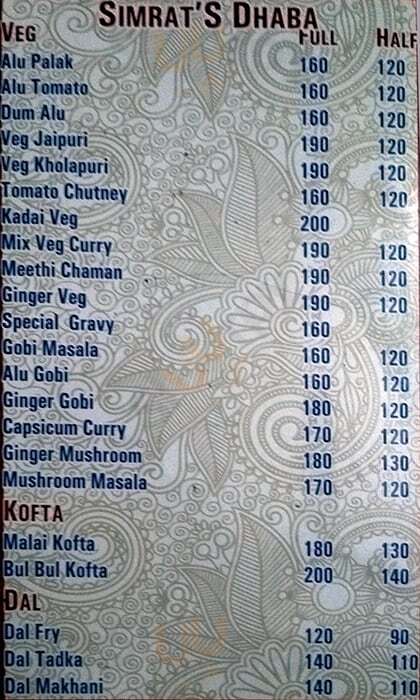 SIMRAT'S DHABA
VEG FULL HALF
Alu Palak 160 120
Alu Tomato 160 120
Dum Alu 160 120
Veg Jaipuri 190 120
Veg Kholapuri 190 120
Tomato Chutney 160 120
Kadai Veg 200
Mix Veg Curry 190 120
Meethi Chaman 190 120
Ginger Veg 190 120
Special Gravy 160
Gobi Masala 160 120
Alu Gobi 160 120
Ginger Gobi 180 120
Capsicum Curry 170 120
Ginger Mushroom 180 130
Mushroom Masala 170 120
KOFTA
Malai Kofta 180 130
Bul Bul Kofta 200 140
DAL
Dal Fry 120 90
Dal Tadka 140 110
Dal Makhani 140 110